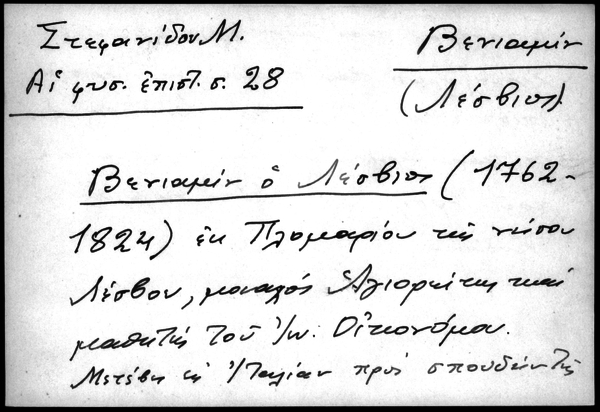 Στεφανίδου Μ.
Αἱ φυσ. ἐπιστ. σ. 28
Βενιαμίν
(Λέσβιος)
Βενιαμίν ὁ Λέσβιος (1762-
1824) ἐκ Πλομαρίου τῆς νήσου
Λέσβου, μοναχός Ἁγιορείτης καί
μαθητής τοῦ Ἰω. Οἰκονόμου.
Μετέβη εἰς Ἰταλίαν πρός σπουδήν τῆς